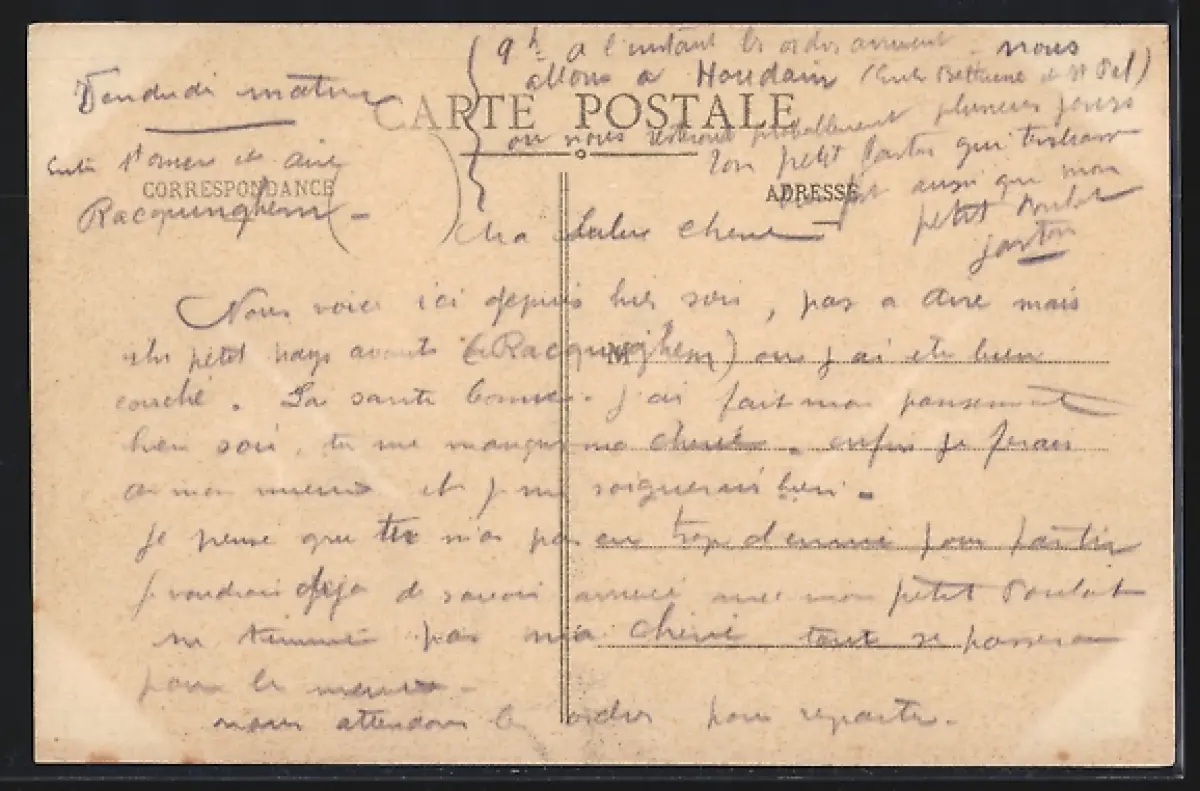 9h a l'instant les ordres arrivent - nous
allons a Houdain (Entre Bethune et St Pol)
ou nous resterons probablement plusieurs jours
Ton petit qui
aussi que mon
petit Poulot
Vendredi matin
CARTE POSTALE
Entre St omer et Aire
CORRESPONDANCE
ADRESSE
Racquinghem -
cherie
Nous voici ici depuis hier soir, pas a Aire mais
petit pays avant (Racquinghem) ou j'ai ete bien
M
couché. La santé bonne. J'ai fait mon pansement
hier soir, tu me manques ma cherie. enfin je ferais
de mon mieux et je me soignerais bien.
Je pense que tu n'as pas eu trop d'ennui pour partir
je voudrais deja te savoir avec mon petit Poulot
ne pas ma cherie tout se passera
pour le mieux -
nous attendons les ordres pour repartir.